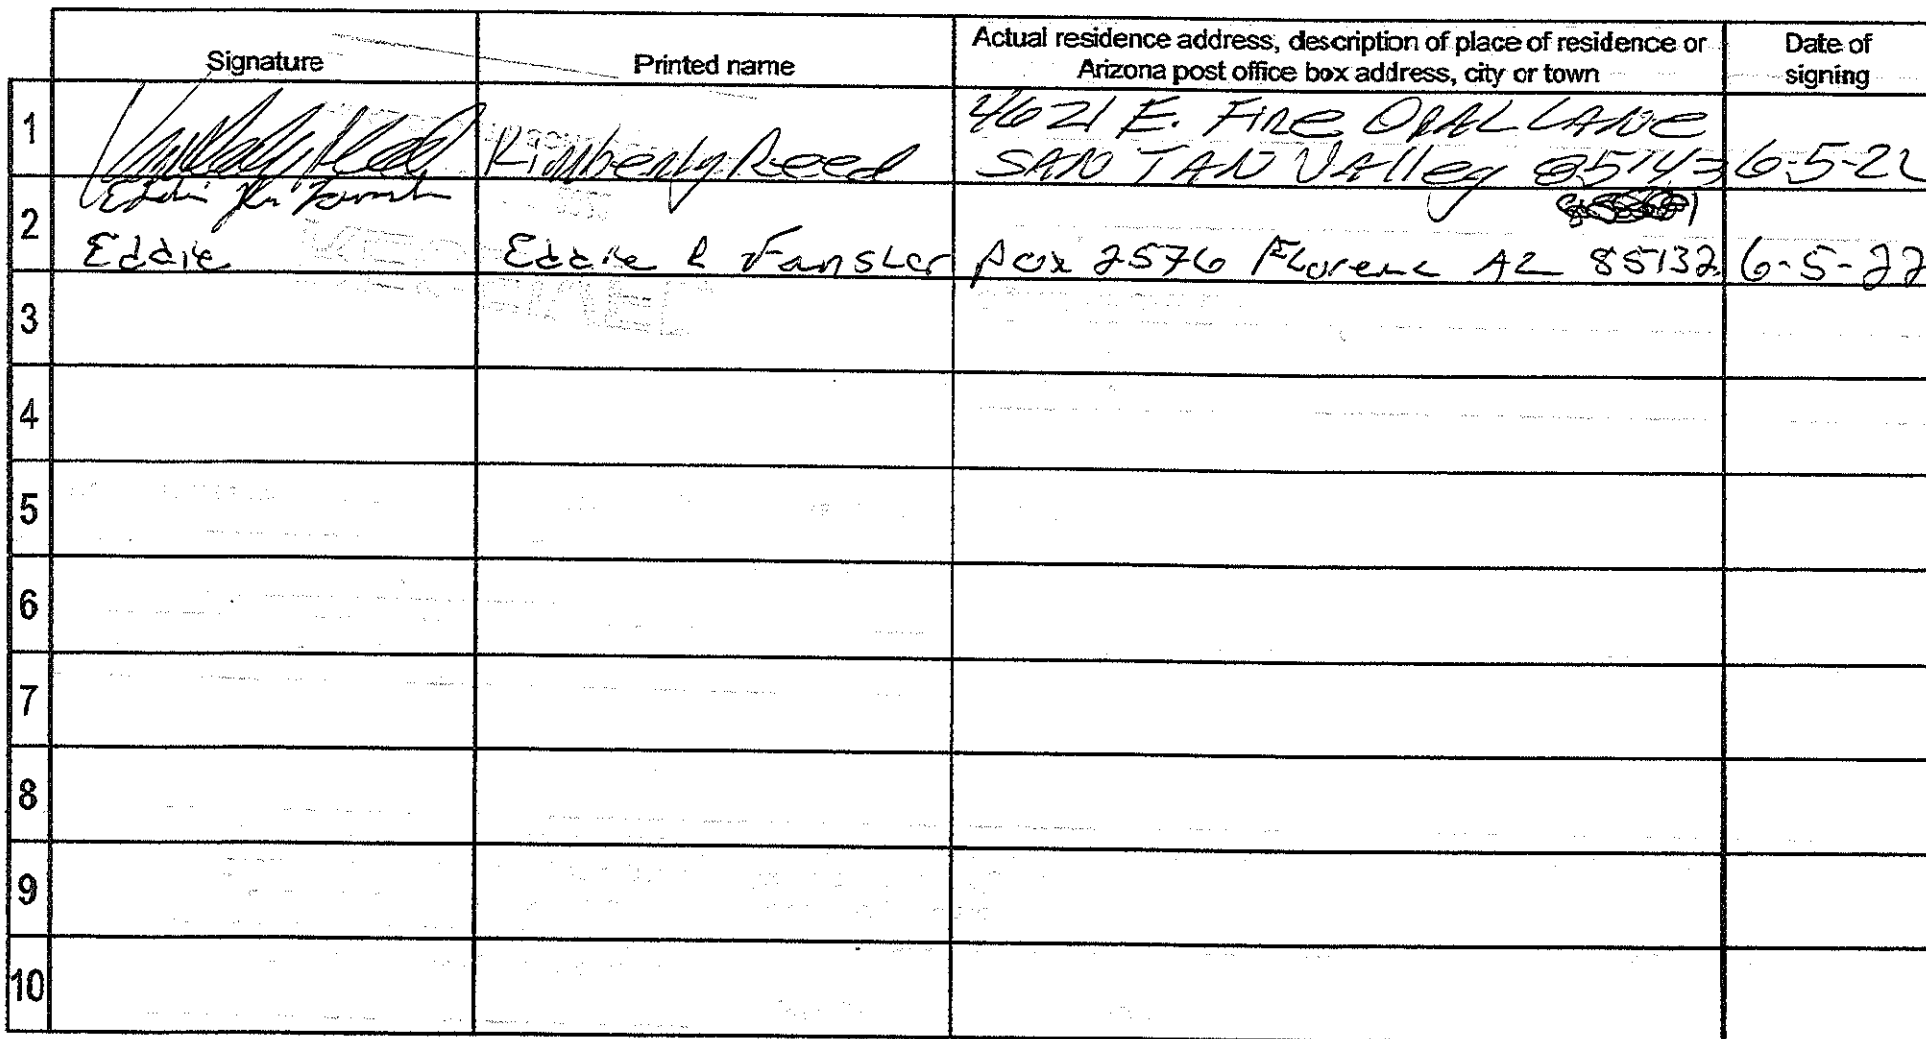 Signature
Printed name
Actual residence address, description of place of residence or
Arizona post office box address, city or town
Date of
signing
1
Kimberly Reed
4621 E. FIRE OPAL LANE
SAN TAN VAlley 85143
6-5-22
2
Eddie
Eddie R Fansler
Box 2576 Florenc AZ 85132
6-5-22
3
4
5
6
7
8
9
10